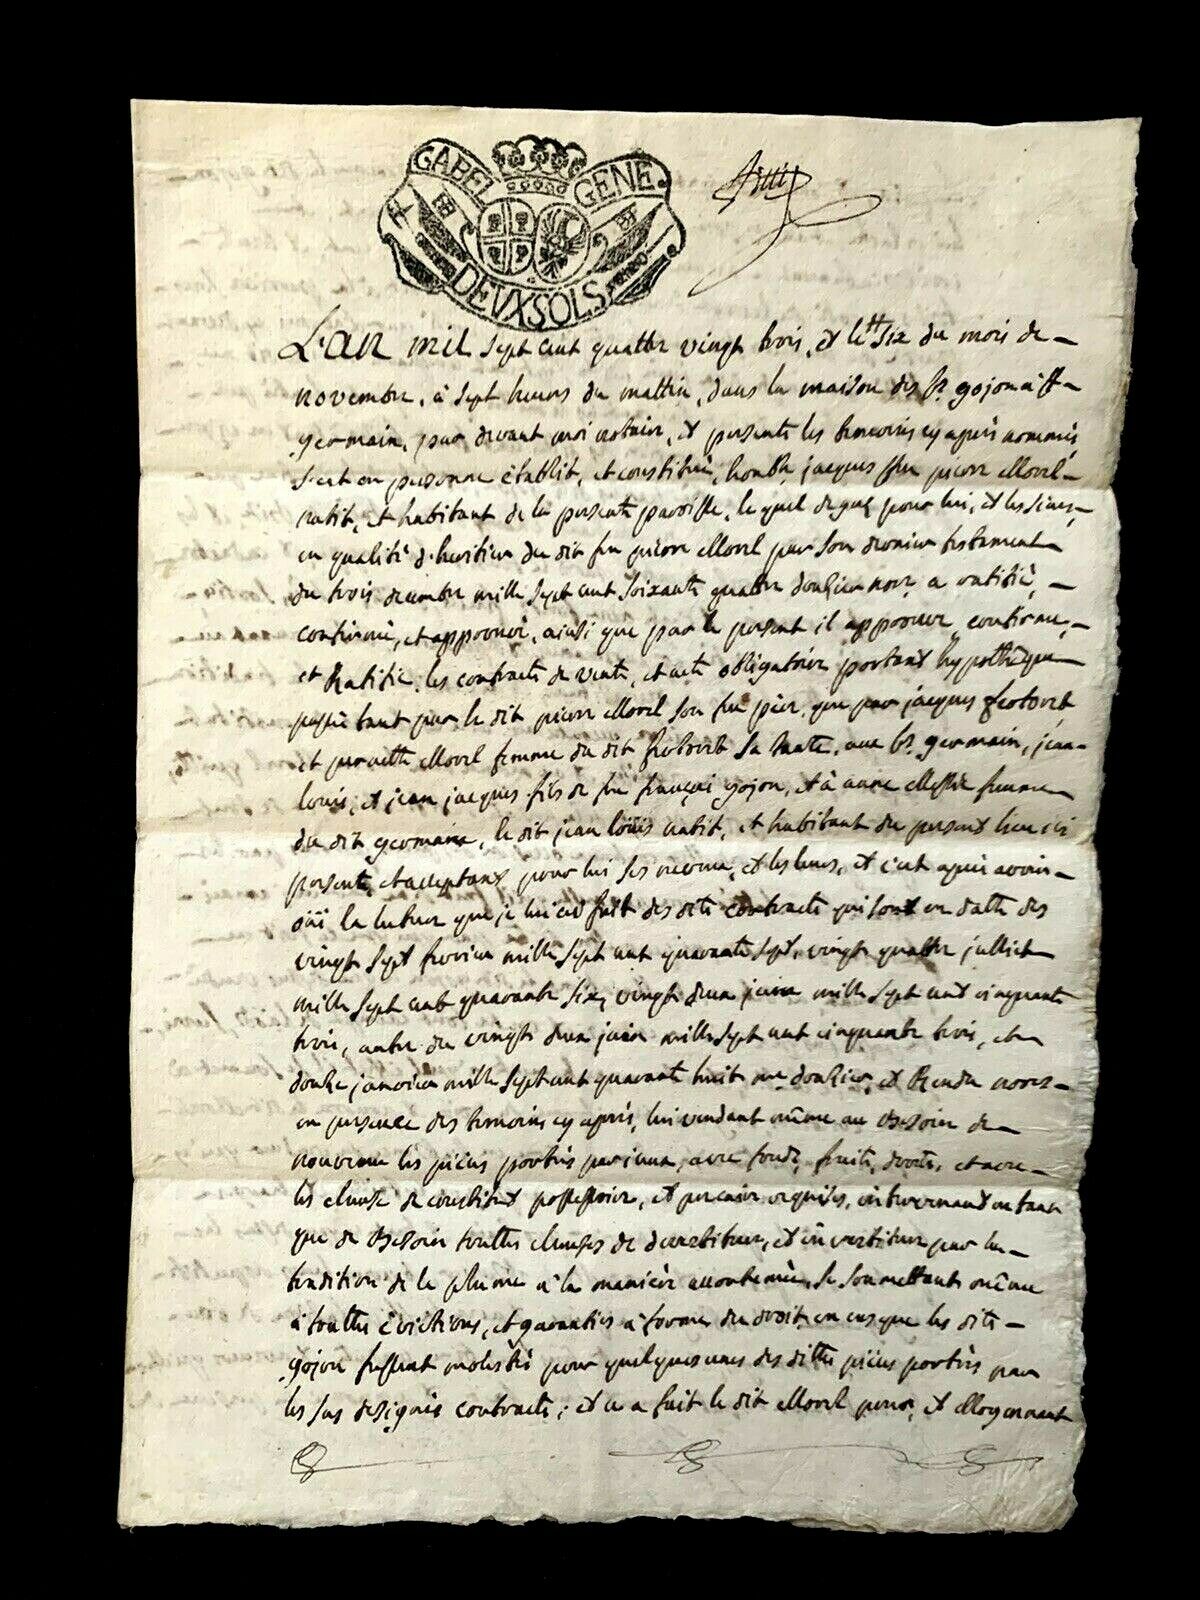 GABE. GENE.
DEVX SOLS
L'an mil sept cent quattre vingt trois, et le six du mois de
novembre, à sept heures du mattin, dans la maison des Sr. gojon à St
germain, par devant moi notaire, et presents les temoins cy après nommés
s'est en personne établit, et constitué, honble jacques feu pierre Morel
natif, et habitant de la presente paroisse, le quel de gré pour lui, et les siens,
en qualité d'heritier du dit feu pierre Morel par son dernier testament
du trois decembre mille sept cent soixante quattre dousier noir, a ratifié,
confirmé, et approuvé, ainsi que par le present il approuve, confirme,
et Ratifie, les contracts de vente, et acte obligatoire portant hypothèque
passé tant par le dit pierre Morel son feu père, que par jacques frobert
et pernette Morel femme du dit frobert sa tante, aux Srs germain, jean
louis, et jean jacques fils de feu françois gojon, et à anne femme
du dit germain, le dit jean loüis natif, et habitant du present lieu ici
present, et acceptant pour lui ses et les leurs, et c'est après avoir
oüi la lecture que je lui ai fait des dits contracts qui sont en datte des
vingt sept fevrier mille sept cent quarante sept, vingt quattre julliet
mille sept cent quarante six, vingt deux juin mille sept cent cinquante
trois, autre du vingt deux juin mille sept cent cinquante trois, et
douze janvier mille sept cent quarante huit et Rendu
en presence des temoins cy après, lui vendant même au Besoin de
nouveau les pièces portées par iceux, avec fonds, fruits, droits, et avec
les clause de constitut possessoire, et precaire requises, intervenant en tant
que de Besoin touttes clauses de devestiture, et investiture par la
tradition de la plume à la manière accoutumée, se soumettant même
à touttes évictions, et garanties à forme du droit en cas que les dits
gojon fussent molestés pour quelques unes des dittes pièces portées par
les sus designés contracts; et ce a fait le dit Morel pour, et Moyennant